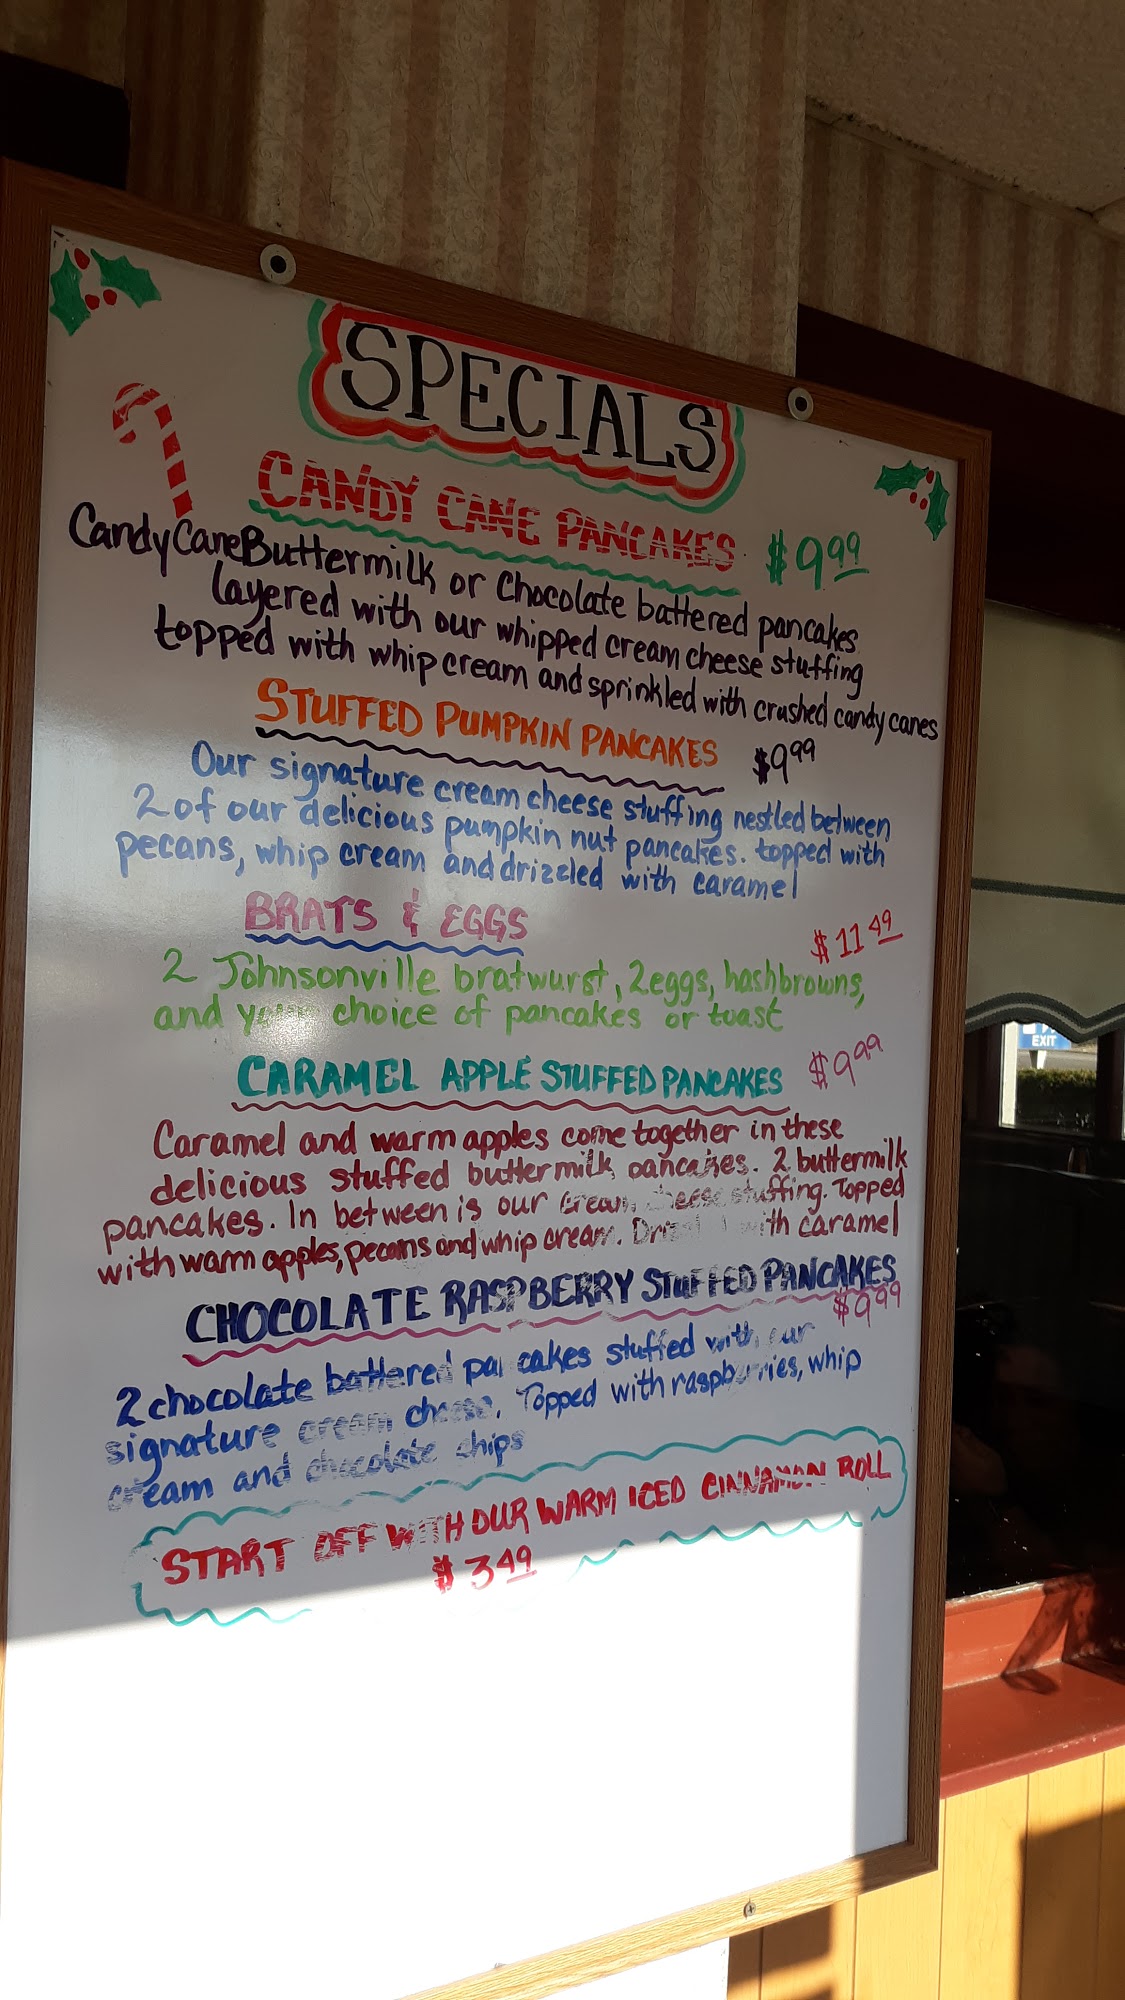 SPECIALS
CANDY CANE PANCAKES $9.99
CandyCaneButtermilk or Chocolate battered pancakes
layered with our whipped cream cheese stuffing
topped with whip cream and sprinkled with crushed candy canes
STUFFED PUMPKIN PANCAKES $9.99
Our signature cream cheese stuffing nestled between
2 of our delicious pumpkin nut pancakes. topped with
pecans, whip cream and drizzled with caramel
BRATS & EGGS $11.49
2 Johnsonville bratwurst, 2 eggs, hashbrowns,
and your choice of pancakes or toast
CARAMEL APPLE STUFFED PANCAKES $9.99
Caramel and warm apples come together in these
delicious stuffed buttermilk pancakes. 2 buttermilk
pancakes. In between is our cream cheese stuffing. Topped
with warm apples, pecans and whip cream. Drizzled with caramel
CHOCOLATE RASPBERRY STUFFED PANCAKES
$9.99
2 chocolate battered pancakes stuffed with our
signature cream cheese. Topped with raspberries, whip
cream and chocolate chips
START OFF WITH OUR WARM ICED CINNAMON ROLL
$3.49
EXIT